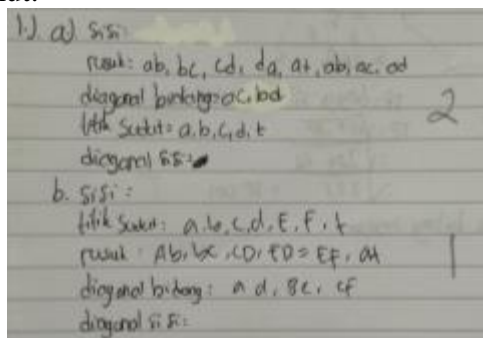 1.) a) sisi:
rusuk: ab, bc, cd, da, at, ab, ac, ad
diagonal bidang: ac, bd
titik sudut: a, b, c, d, t
2
diagonal sisi:
b. sisi:
titik sudut: a, b, c, d, E, F, t
rusuk: Ab, bc, CD, ED = EF, at
1
diagonal bidang: ad, Be, cf
diagonal sisi: